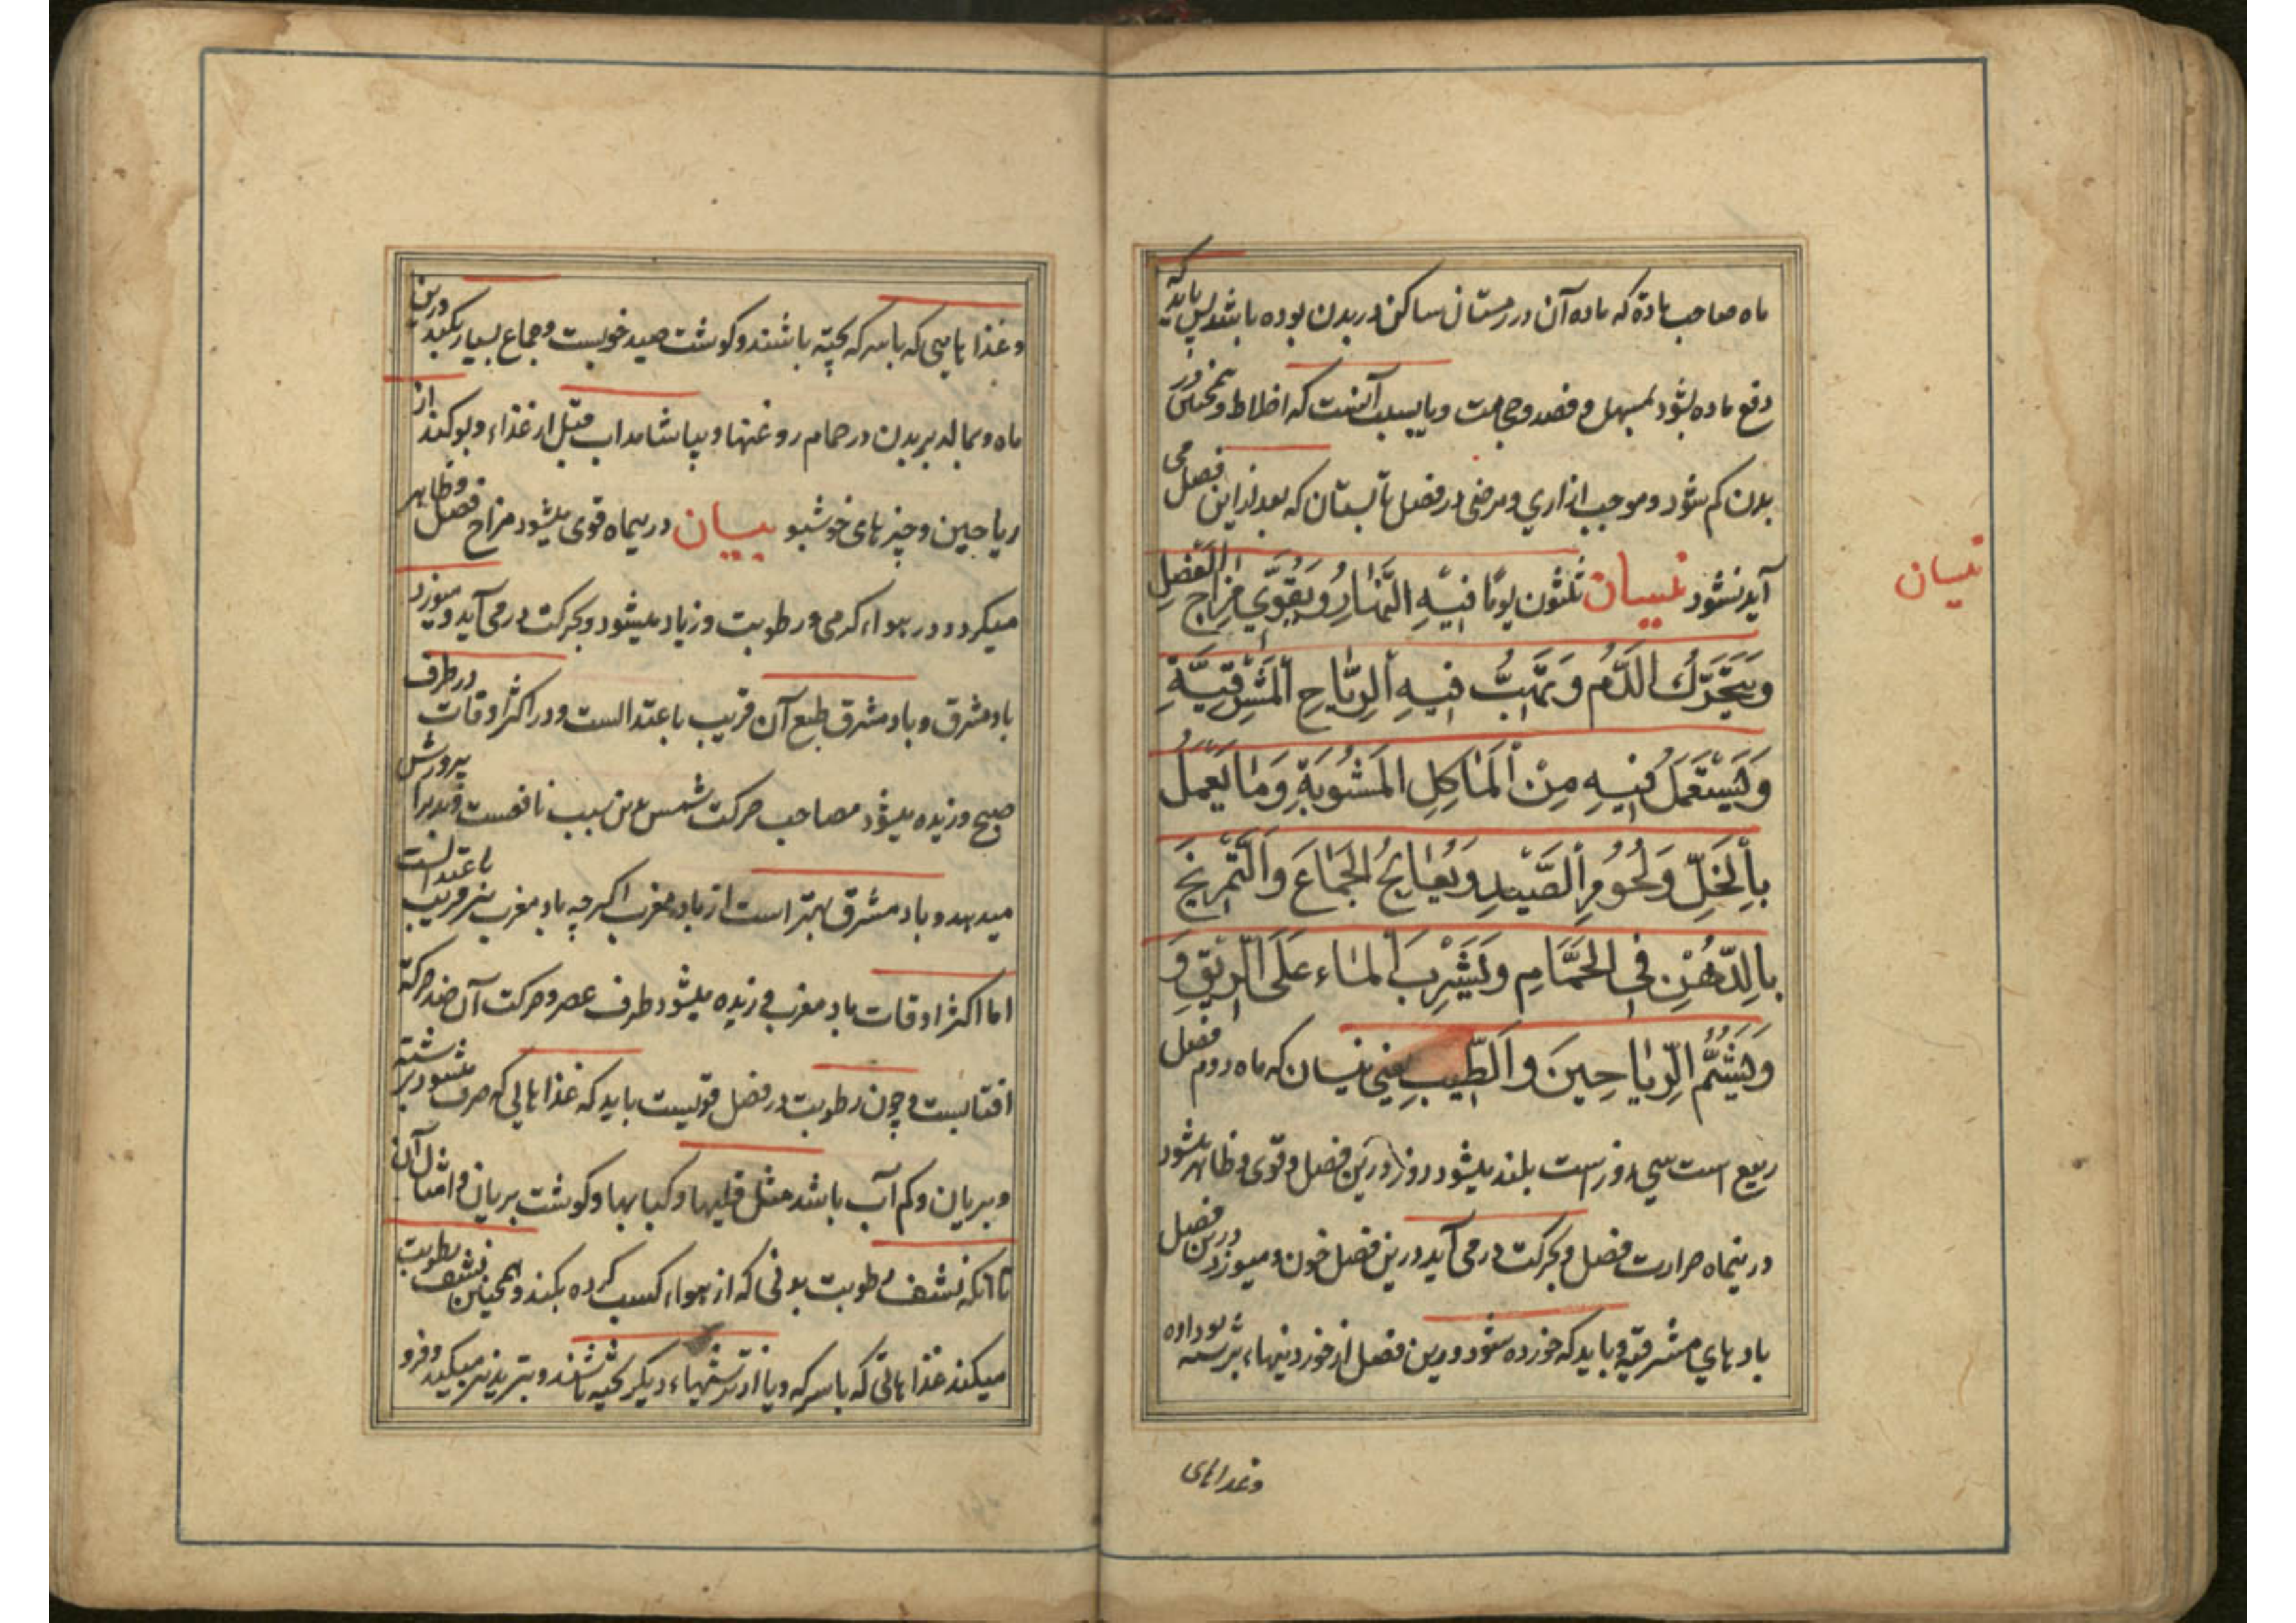 ماه صاحب مادة که ماده آن در زمستان ساکن در بدن بوده باشد پس باید که
دفع ماده بشود بمسهل و فصد و حجامت و یا بسبب آنست که اخلاط و همچنین در
بدن کم شود و موجب ازاری و مرضی در فصل تابستان که بعد از این فصل می
آید نشود نیسان ثلثون یومًا فیهِ النَّهارُ وَیُقَوّی مِزاجُ الفَصلِ
نیسان
وَیَتَحَرَّکُ الدَّمُ وَتَهُبُّ فیهِ الرِّیاحِ المَشرِقِیَّةِ
وَیُستَعمَلُ فیهِ مِنَ المَاکِلِ المَشوُیَةِ وَمَا یُعمَلُ
بِالخَلِّ وَلُحُومِ الصَّیدِ وَیُعالِجُ الجَماعَ وَالتَّمریخَ
بِالدّهُنِ فِی الحَمَّامِ وَیَشرِبَ الماء عَلَی الرّیقِ وَ
وَیَشُمُّ الرِّیاحینَ وَالطّیبِ یعنی نیسان که ماه دوم فصل
ربیع است سی روز است بلند میشود روز درین فصل و قوی و ظاهر میشود
درینماه حرارت فصل و بحرکت در می آید درین فصل خون و میوزد درین فصل
بادهای مشرقیه و باید که خورده شود درین فصل از خوردنیهاء برشته بو داده
وغذاهای
وغذاهایی که باسرکه پخته باشند و کوشت صید خوبست وجماع بسیار بکند درین
ماه و بمالد بر بدن در حمام روغنها و بیاشامد اب قبل از غذاء و بو کند از
ریاحین و چیزهای خوشبو بیان درینماه قوی میشود مزاج فصل و ظاهر
میکردد در هواء کرمی و رطوبت و زیاد میشود و بحرکت در می آید و میوزد
باد مشرق و باد مشرق طبع آن قریب باعتدالست و در اکثر اوقات در طرف
صبح وزیده میشود مصاحب حرکت شمس باین سبب نافعست و بدنرا پرورش
میدهد و باد مشرق بهتر است از باد مغرب اکرچه باد مغرب نیز قریب باعتدالست
اما اکثر اوقات باد مغرب وزیده میشود طرف عصر و حرکت آن ضد حرکة
افتابست و چون رطوبت در فصل قویست باید که غذاهایی که صرف میشود برشته
و بریان و کم آب باشد مثل قلیها و کبابها و کوشت بریان و امثال آن
تا آنکه نشف رطوبت بدنی که از هواء کسب کرده بکند و همچنین نشف رطوبت
میکنند غذاهائی که باسرکه و یا از ترشیهاء دیکر پخته باشند و تبرید نیز میکنید و فرو